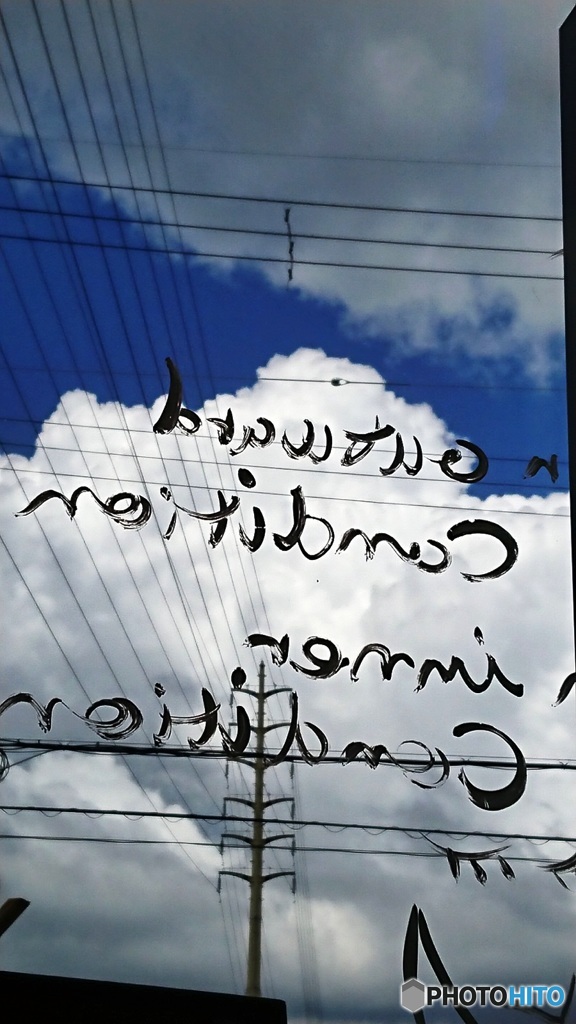 outward
Condition
inner
Condition
PHOTOHITO